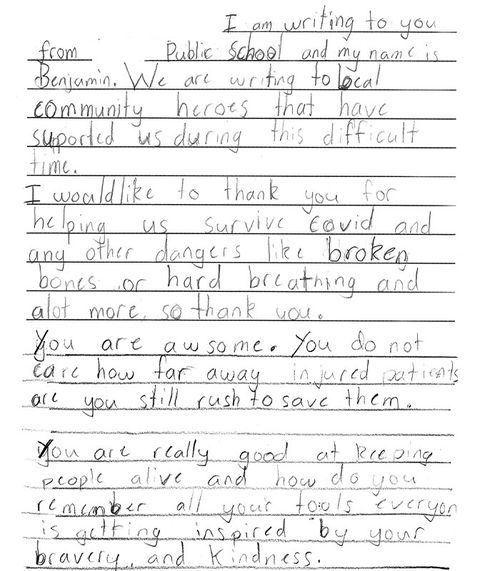 I am writing to you
from Public School and my name is
Benjamin. We are writing to local
community heroes that have
supported us during this difficult
time.
I would like to thank you for
helping us survive covid and
any other dangers like broken
bones or hard breathing and
alot more. so thank you.
You are awsome. You do not
care how far away injured patients
are you still rush to save them.
You are really good at keeping
people alive and how do you
remember all your tools everyon
is getting inspired by your
bravery and kindness.